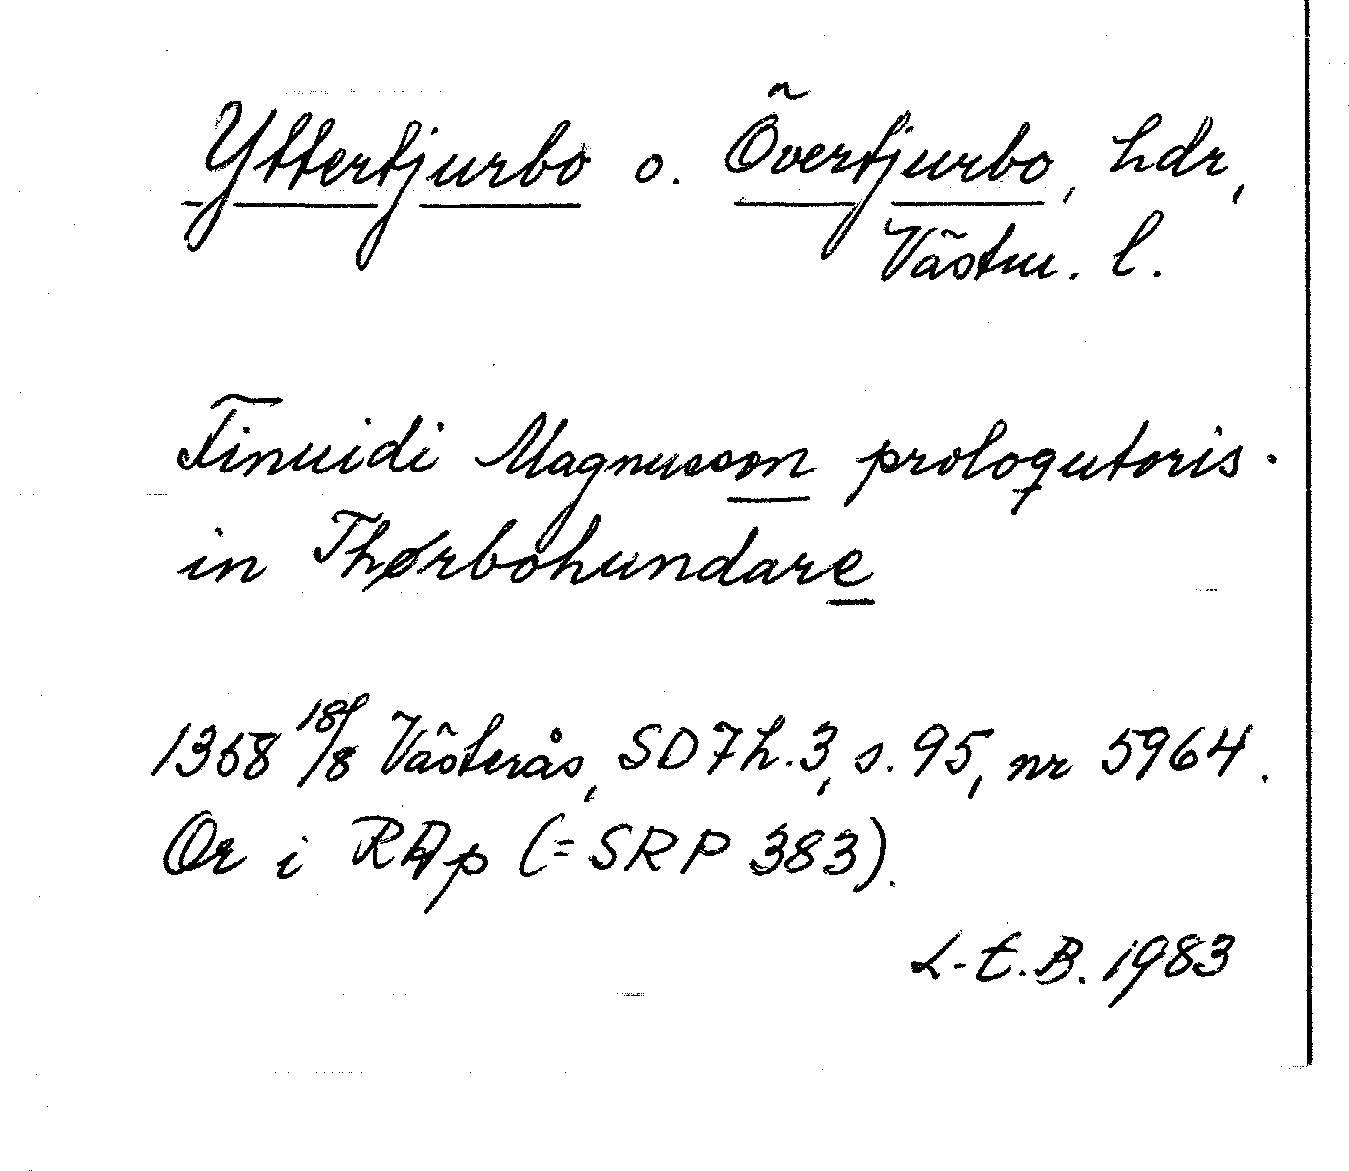 Yttertjurbo o. Övertjurbo, hdr,
Västm. l.
Finuidi Magnusson proloqutoris
in Thørbohundare
1358 18/8 Västerås, SD 7 h. 3, s. 95, nr 5964.
Or i RAp (= SRP 383).
L-E.B. 1983